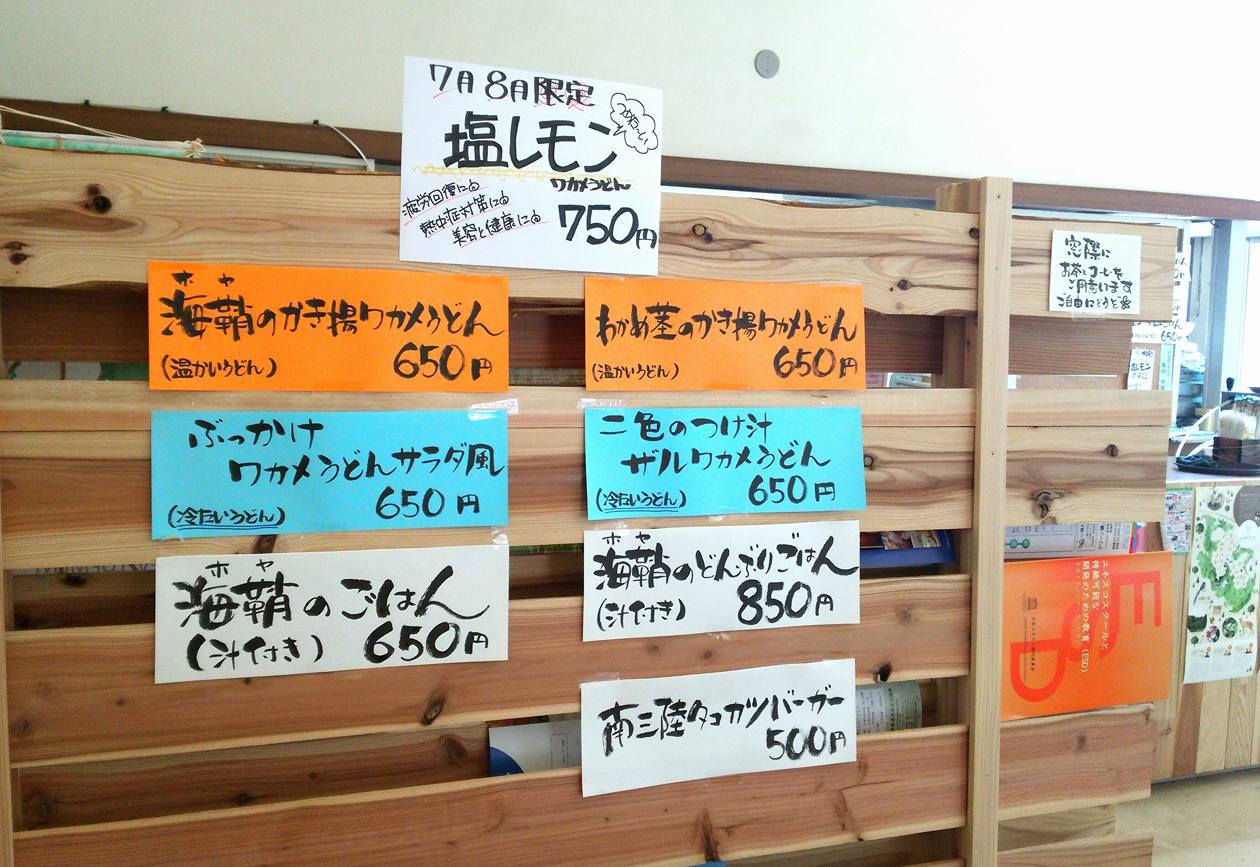 7月8月限定
つめた〜い
塩レモン
ワカメうどん
疲労回復に
熱中症対策に
美容と健康に
750円
ホヤ
海鞘のかき揚ワカメうどん
(温かいうどん) 650円
わかめ茎のかき揚ワカメうどん
(温かいうどん) 650円
ぶっかけ
ワカメうどんサラダ風
(冷たいうどん) 650円
二色のつけ汁
ザルワカメうどん
(冷たいうどん) 650円
ホヤ
海鞘のごはん
(汁付き) 650円
ホヤ
海鞘のどんぶりごはん
(汁付き) 850円
南三陸タコカツバーガー
500円
窓際に
お茶とコーヒーを
ご用意います
ご自由にどうぞ
ユネスコスクールと
持続可能な
開発のための教育(ESD)
ESD
塩レモン
650円